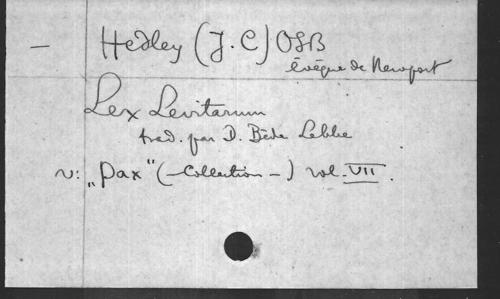 — Hedley (J. C) OSB
évêque de Newport
Lex Levitarum
trad. par D. Bède Lebbe
v: „Pax" (— Collection —) vol. VII.